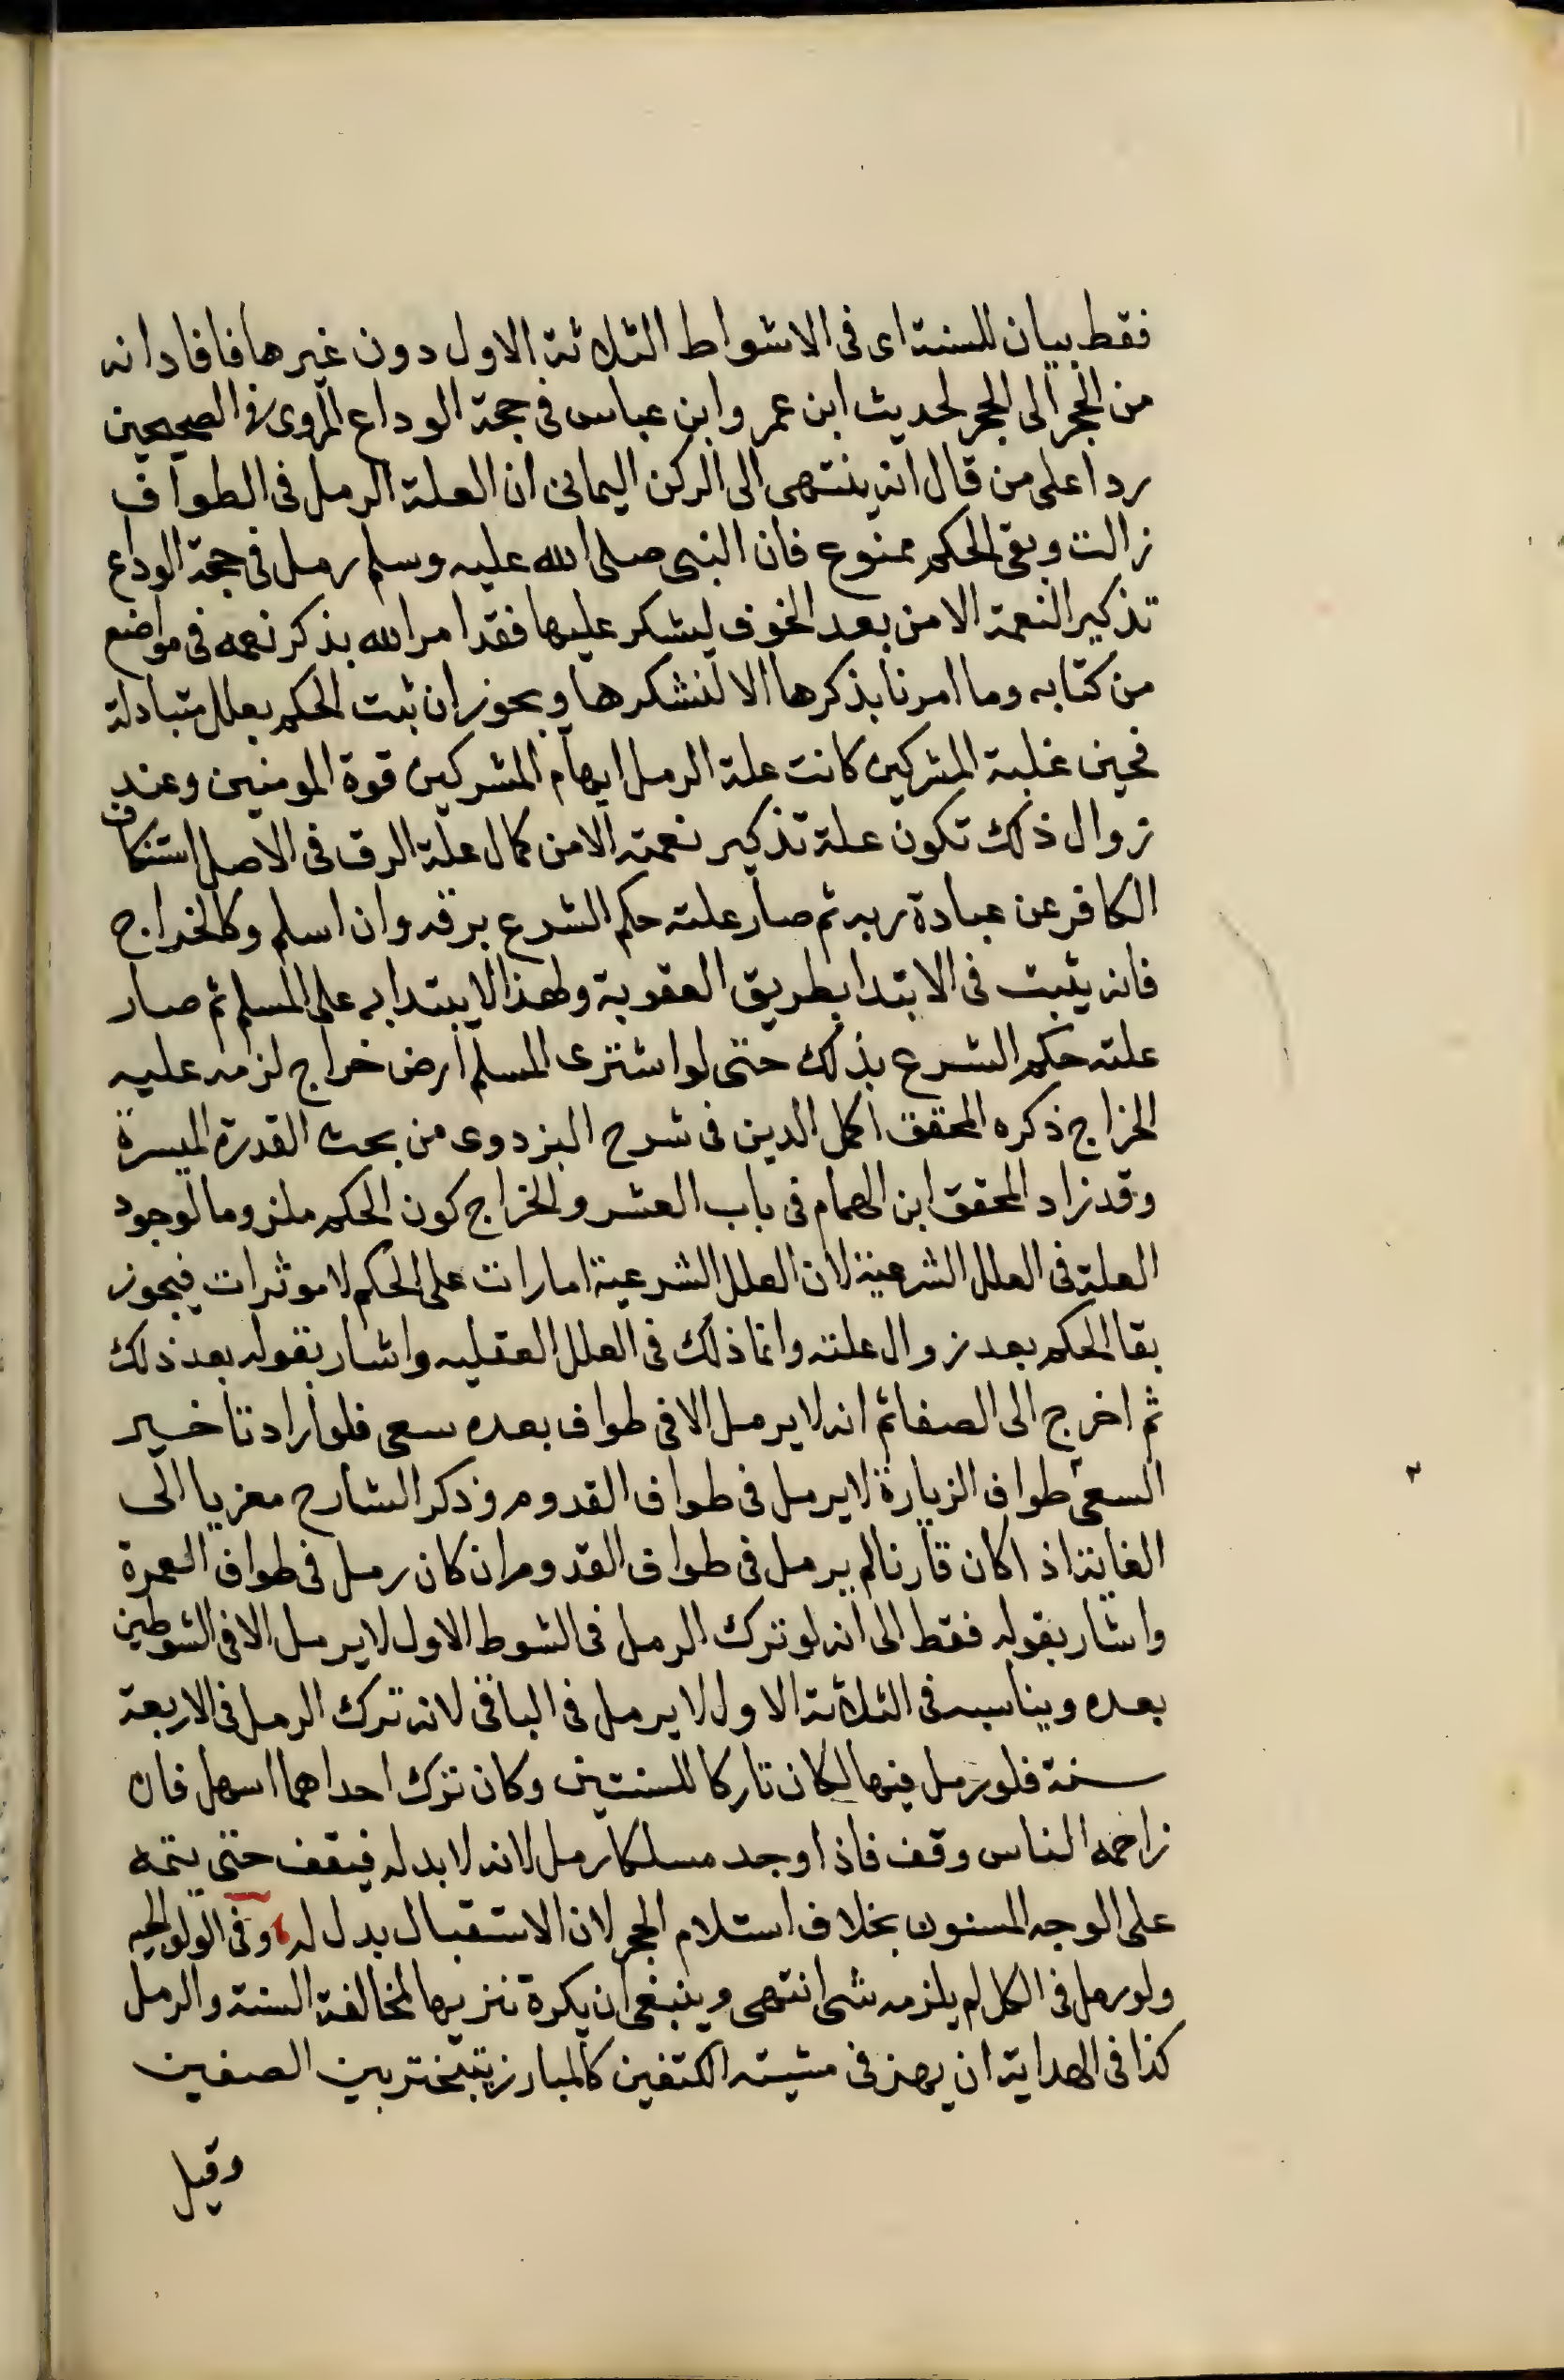 فقط بيان للسنة اى فى الاشواط الثلاثة الاول دون غيرها فافاد انه
من الحجر الى الحجر لحديث ابن عمر وابن عباس فى حجة الوداع المروى فى الصحيحين
ردا على من قال انه ينتهى الى الركن اليمانى ان العلة الرمل فى الطواف
زالت وبقى الحكم ممنوع فان النبى صلى الله عليه وسلم رمل فى حجة الوداع
تذكير النعمة الامن بعد الخوف ليشكر عليها فقد امر الله بذكر نعمه فى مواضع
من كتابه وما امرنا بذكرها الا لنشكرها ويجوز ان ثبت الحكم بعلل متبادلة
فحين غلبة المشركين كانت علة الرمل ايهام المشركين قوة المومنين وعند
زوال ذلك تكون علة تذكير نعمة الامن كمال علة الرق فى الاصل استنكاف
الكافر عن عبادة ربه ثم صار علته حكم الشرع برقه وان اسلم وكالخراج
فانه يثبت فى الابتدا بطريق العقوبة ولهذا لا يبتدا به على المسلم ثم صار
علته حكم الشرع بذلك حتى لو اشترى المسلم ارض خراج لزمه عليه
الخراج ذكره المحقق اكمل الدين فى شرح البزدوى من بحث القدرة الميسرة
وقد زاد المحقق ابن الهمام فى باب العشر والخراج كون الحكم ملزوما لوجود
العلة فى العلل الشرعية لان العلل الشرعية امارات على الحكم لا موثرات فيجوز
بقا الحكم بعد زوال علته وانما ذلك فى العلل العقليه واشار بقوله بعد ذلك
ثم اخرج الى الصفا ثم انه لا يرمل الا فى طواف بعده سعى فلو اراد تاخير
السعى طواف الزيارة لا يرمل فى طواف القدوم وذكر الشارح معزيا الى
الغاية اذا كان قارنا لم يرمل فى طواف القدوم ان كان رمل فى طواف العمرة
واشار بقوله فقط الى انه لو ترك الرمل فى الشوط الاول لا يرمل الا فى الشوطين
بعده ويناسيه فى الثلاثة الاول لا يرمل فى الباقى لانه ترك الرمل فى الاربعة
سنة فلو رمل فيها لكان تاركا للسنتين وكان ترك احداهما اسهل فان
زاحمه الناس وقف فاذا وجد مسلكا رمل لانه لا بد له فيقف حتى يتمه
على الوجه المسنون بخلاف استلام الحجر لان الاستقبال بدل له وفى الولوالجيه
ولو رمل فى الكل لم يلزمه شى انتهى وينبغى ان يكره تنزيها لمخالفة السنة والرمل
كذا فى الهداية ان يهز فى مشيته الكتفين كالمبارز يتبختر بين الصفين
وقيل